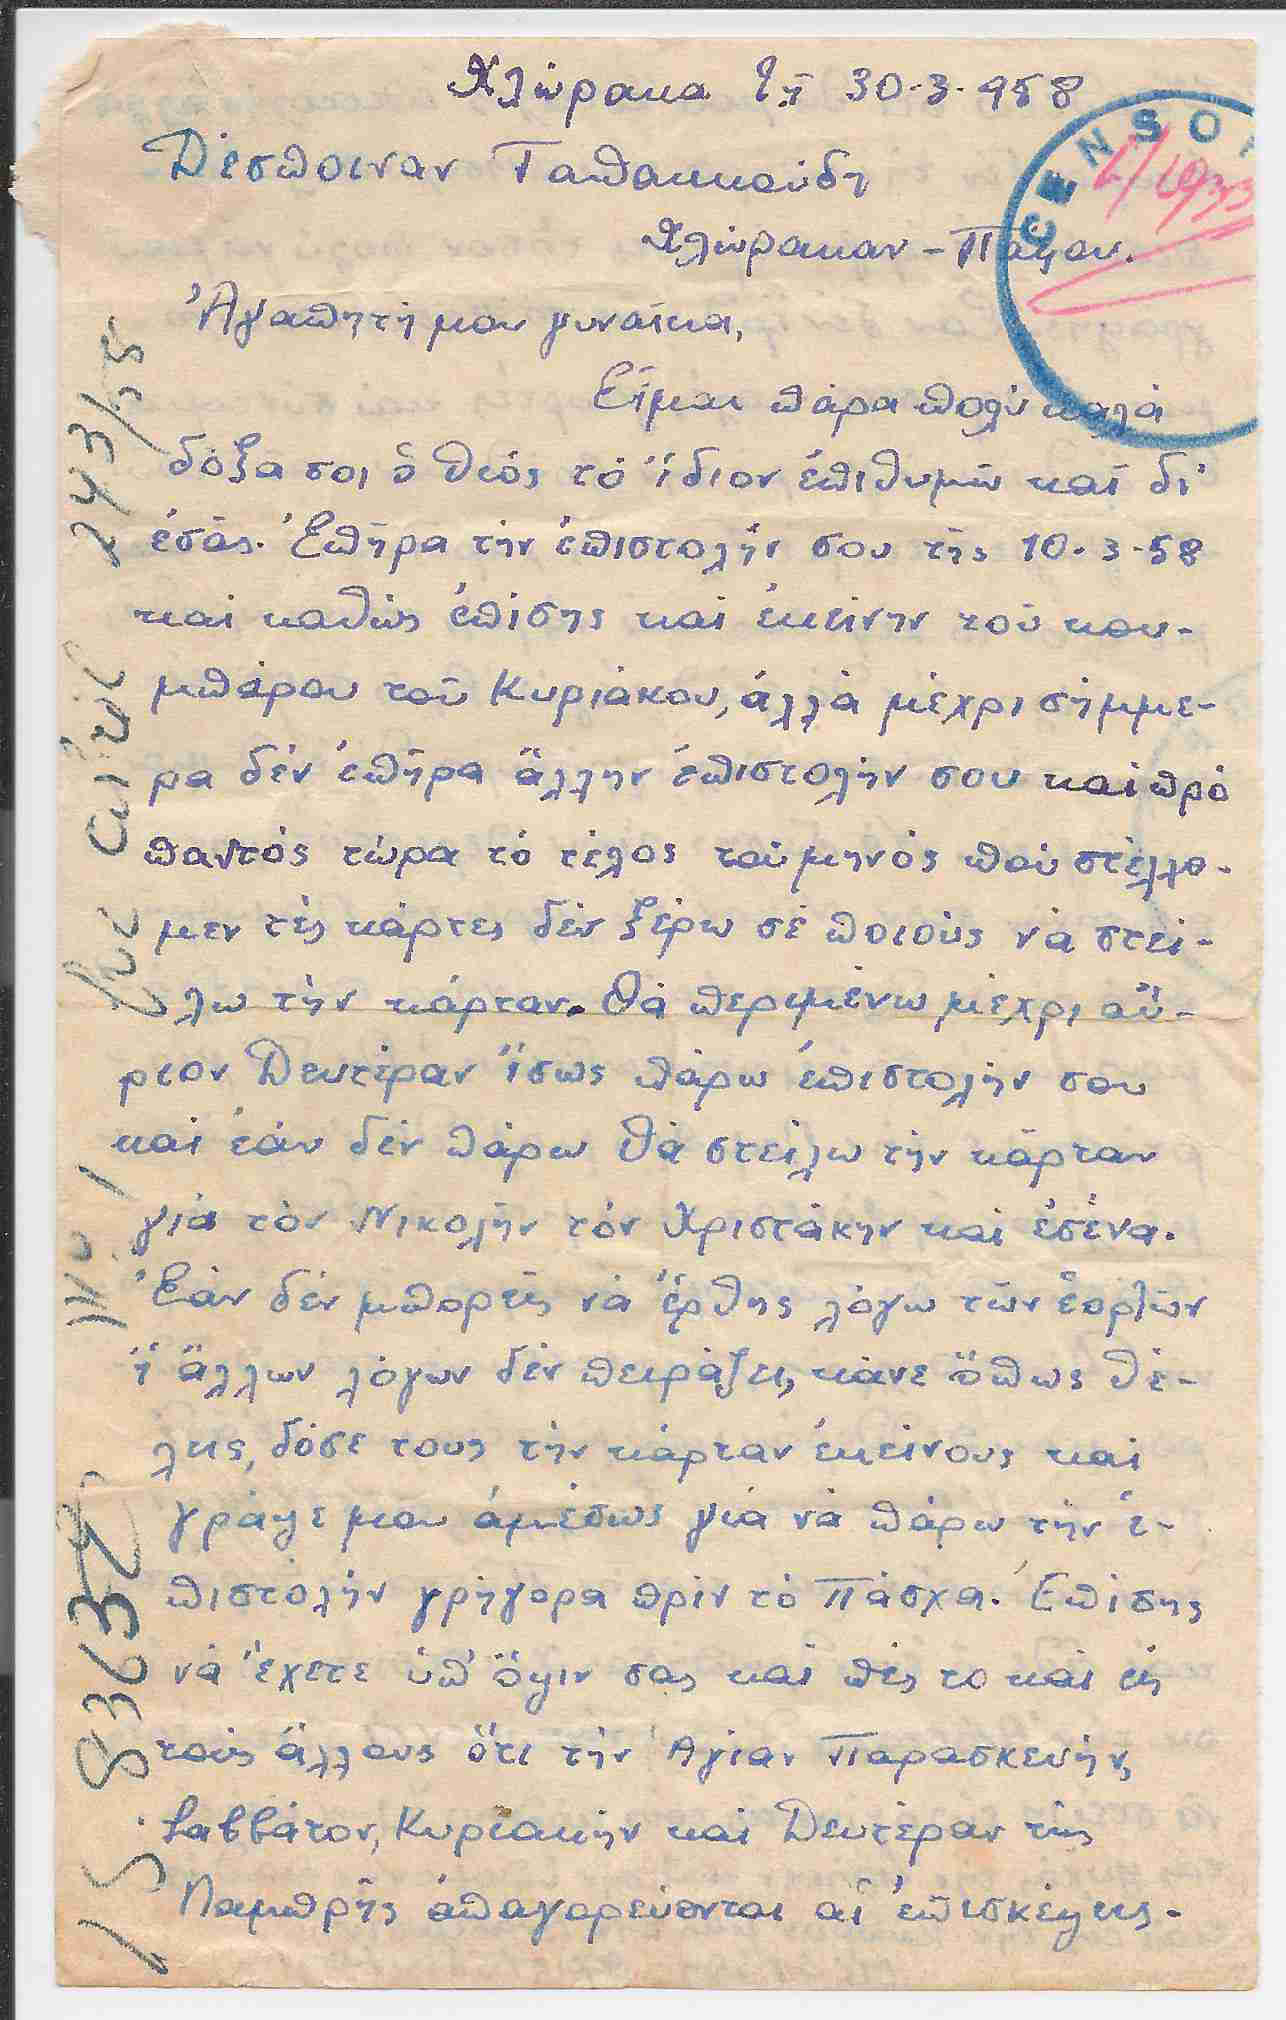 Χλώρακα τῇ 30.3.958
CENSOR
Δέσποιναν Ταπακκούδη
Χλώρακαν - Πάφου.
Ἀγαπητή μου γυναῖκα,
Εἶμαι πάρα πολύ καλά
δόξα σοι ὁ Θεός τό ἴδιον ἐπιθυμῶ καί δι'
ἐσᾶς. Ἐπῆρα τήν ἐπιστολήν σου τῆς 10.3.58
καί καθώς ἐπίσης καί ἐκείνην τοῦ κου-
μπάρου τοῦ Κυριάκου, ἀλλά μέχρι σήμμε-
ρα δέν ἐπῆρα ἄλλην ἐπιστολήν σου καί πρό
παντός τώρα τό τέλος τοῦ μηνός πού στέλλο-
μεν τές κάρτες δέν ξέρω σέ ποιούς νά στεί-
λω τήν κάρταν. Θά περιμένω μέχρι αὔ-
ριον Δευτέραν ἴσως πάρω ἐπιστολήν σου
καί ἐάν δέν πάρω θά στείλω τήν κάρταν
γιά τόν Νικολήν τόν Χριστάκην καί ἐσένα.
Ἐάν δέν μπορεῖς νά ἔρθης λόγω τῶν ἑορτῶν
ἤ ἄλλων λόγων δέν πειράζει, κάνε ὅπως θέ-
λεις, δόσε τους τήν κάρταν ἐκείνους καί
γράψε μου ἀμέσως γιά νά πάρω τήν ἐ-
πιστολήν γρήγορα πρίν τό Πάσχα. Ἐπίσης
νά ἔχετε ὑπ' ὄψιν σας καί πές το καί εἰς
τούς ἄλλους ὅτι τήν Ἁγίαν Παρασκευήν,
Σαββάτον, Κυριακήν καί Δευτέραν τῆς
Λαμπρῆς ἀπαγορεύονται αἱ ἐπισκέψεις.